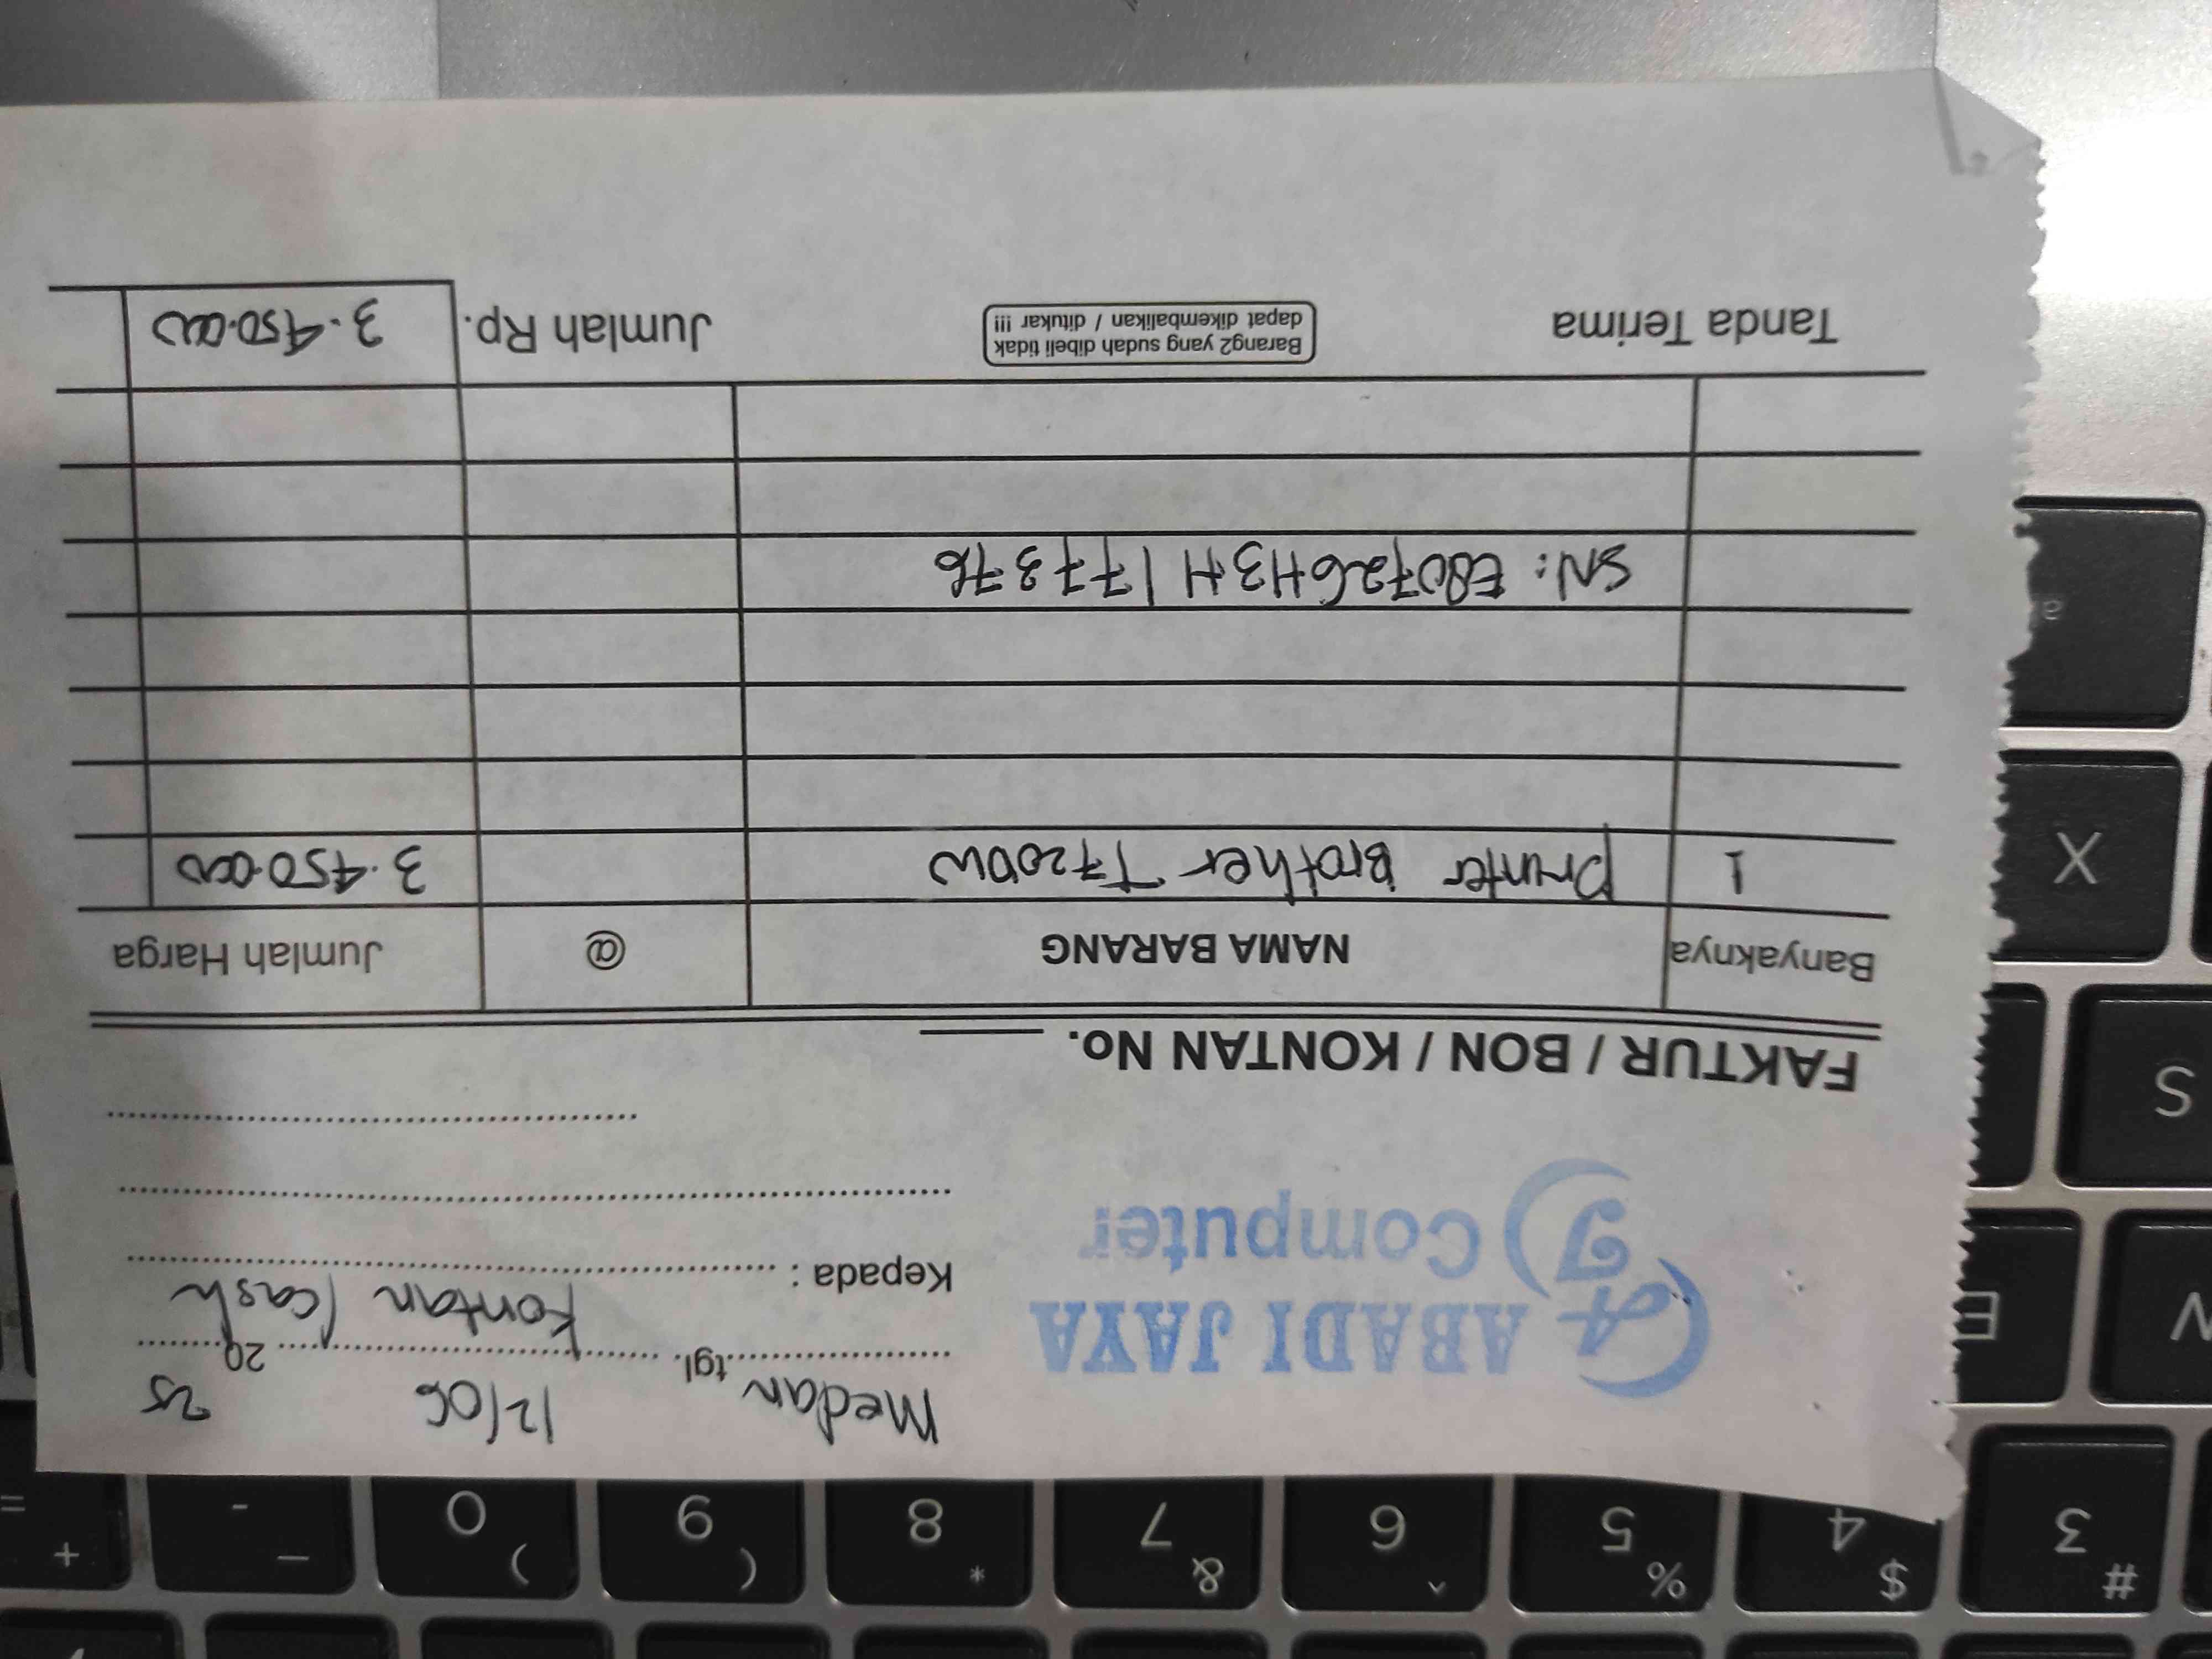 Medan tgl. 12/06 2025
Kontan / Cash
Kepada :
ABADI JAYA
Computer
AJ
FAKTUR / BON / KONTAN No.
Banyaknya NAMA BARANG @ Jumlah Harga
1 Printer Brother T720DW 3.450.000
SN: E80726H3H177376
Tanda Terima
Barang2 yang sudah dibeli tidak
dapat dikembalikan / ditukar !!!
Jumlah Rp. 3.450.000
a
X
S
W
E
# 3
$ 4
% 5
^ 6
& 7
* 8
( 9
) 0
_ -
+ =